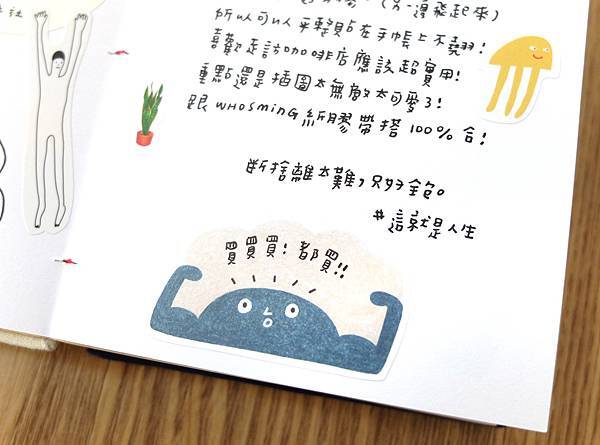 (另一邊飛起來)
所以可以平整貼在手帳上不翹!
喜歡走訪咖啡店應該超實用!
重點還是插圖太無敵太可愛了!
跟 WHOSMiNG 紙膠帶搭 100% 合!
断捨離太難,只好全包。
#這就是人生
買買買! 都買!!